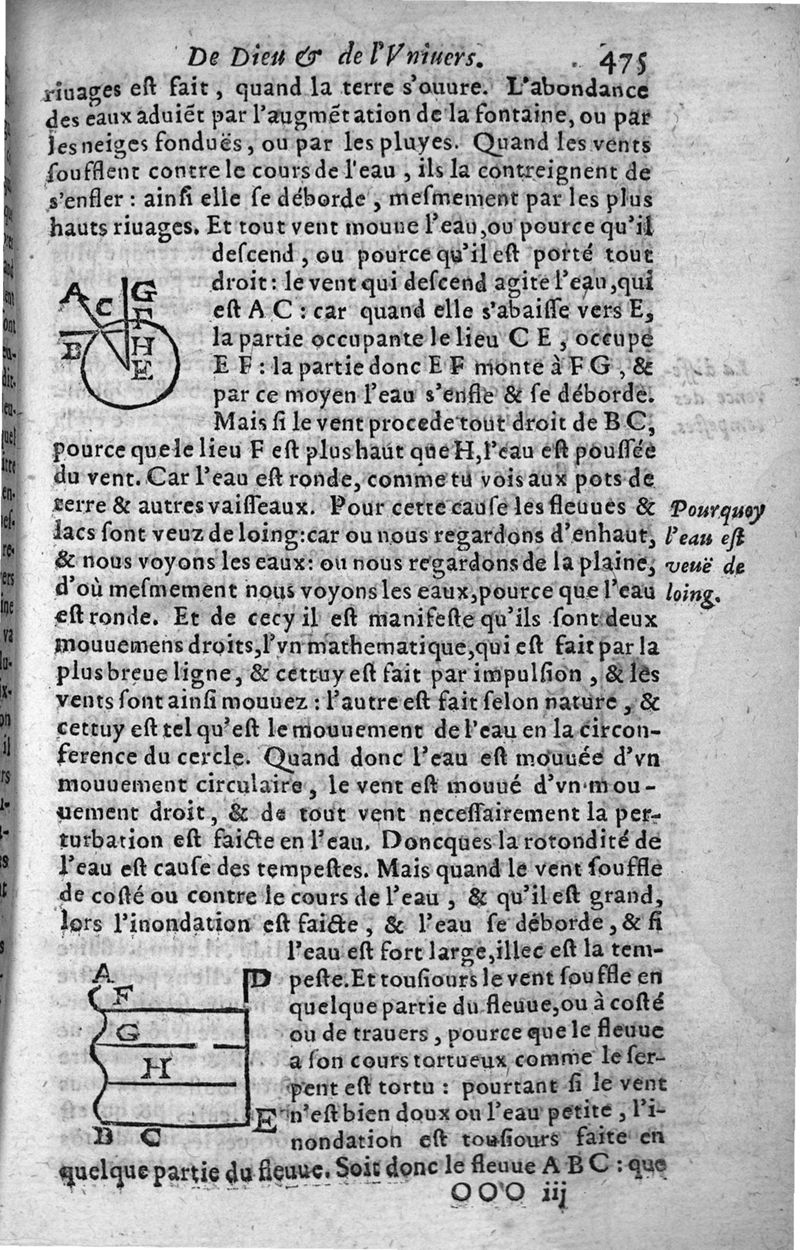 De Dieu & de l'Vniuers. 475
riuages eſt fait, quand la terre s'ouure. L'abondance
des eaux aduiẽt par l'augmẽtation de la fontaine, ou par
les neiges fonduës, ou par les pluyes. Quand les vents
ſoufflent contre le cours de l'eau, ils la contreignent de
s'enfler: ainſi elle ſe déborde, meſmement par les plus
hauts riuages. Et tout vent mouue l'eau, ou pource qu'il
deſcend, ou pource qu'il eſt porté tout
droit: le vent qui deſcend agite l'eau, qui
eſt A C: car quand elle s'abaiſſe vers E,
la partie occupante le lieu C E, occupe
E F: la partie donc E F monte à F G, &
par ce moyen l'eau s'enfle & ſe déborde.
Mais ſi le vent procede tout droit de B C,
A G
C F
B H
E
pource que le lieu F eſt plus haut que H, l'eau eſt pouſſée
du vent. Car l'eau eſt ronde, comme tu vois aux pots de
terre & autres vaiſſeaux. Pour cette cauſe les fleuues &
lacs ſont veuz de loing: car ou nous regardons d'enhaut,
& nous voyons les eaux: ou nous regardons de la plaine,
d'où meſmement nous voyons les eaux, pource que l'eau
eſt ronde. Et de cecy il eſt manifeſte qu'ils ſont deux
Pourquoy
l'eau eſt
veuë de
loing.
mouuemens droits, l'vn mathematique, qui eſt fait par la
plus breue ligne, & cettuy eſt fait par impulſion, & les
vents ſont ainſi mouuez: l'autre eſt fait ſelon nature, &
cettuy eſt tel qu'eſt le mouuement de l'eau en la circon-
ference du cercle. Quand donc l'eau eſt mouuée d'vn
mouuement circulaire, le vent eſt mouué d'vn mou-
uement droit, & de tout vent neceſſairement la per-
turbation eſt faicte en l'eau. Doncques la rotondité de
l'eau eſt cauſe des tempeſtes. Mais quand le vent ſouffle
de coſté ou contre le cours de l'eau, & qu'il eſt grand,
lors l'inondation eſt faicte, & l'eau ſe déborde, & ſi
l'eau eſt fort large, illec eſt la tem-
peſte. Et touſiours le vent ſouffle en
quelque partie du fleuue, ou à coſté
ou de trauers, pource que le fleuue
a ſon cours tortueux comme le ſer-
pent eſt tortu: pourtant ſi le vent
n'eſt bien doux ou l'eau petite, l'i-
nondation eſt touſiours faite en
A D
F
G
H
E
B C
quelque partie du fleuue. Soit donc le fleuue A B C: que
OOO iij